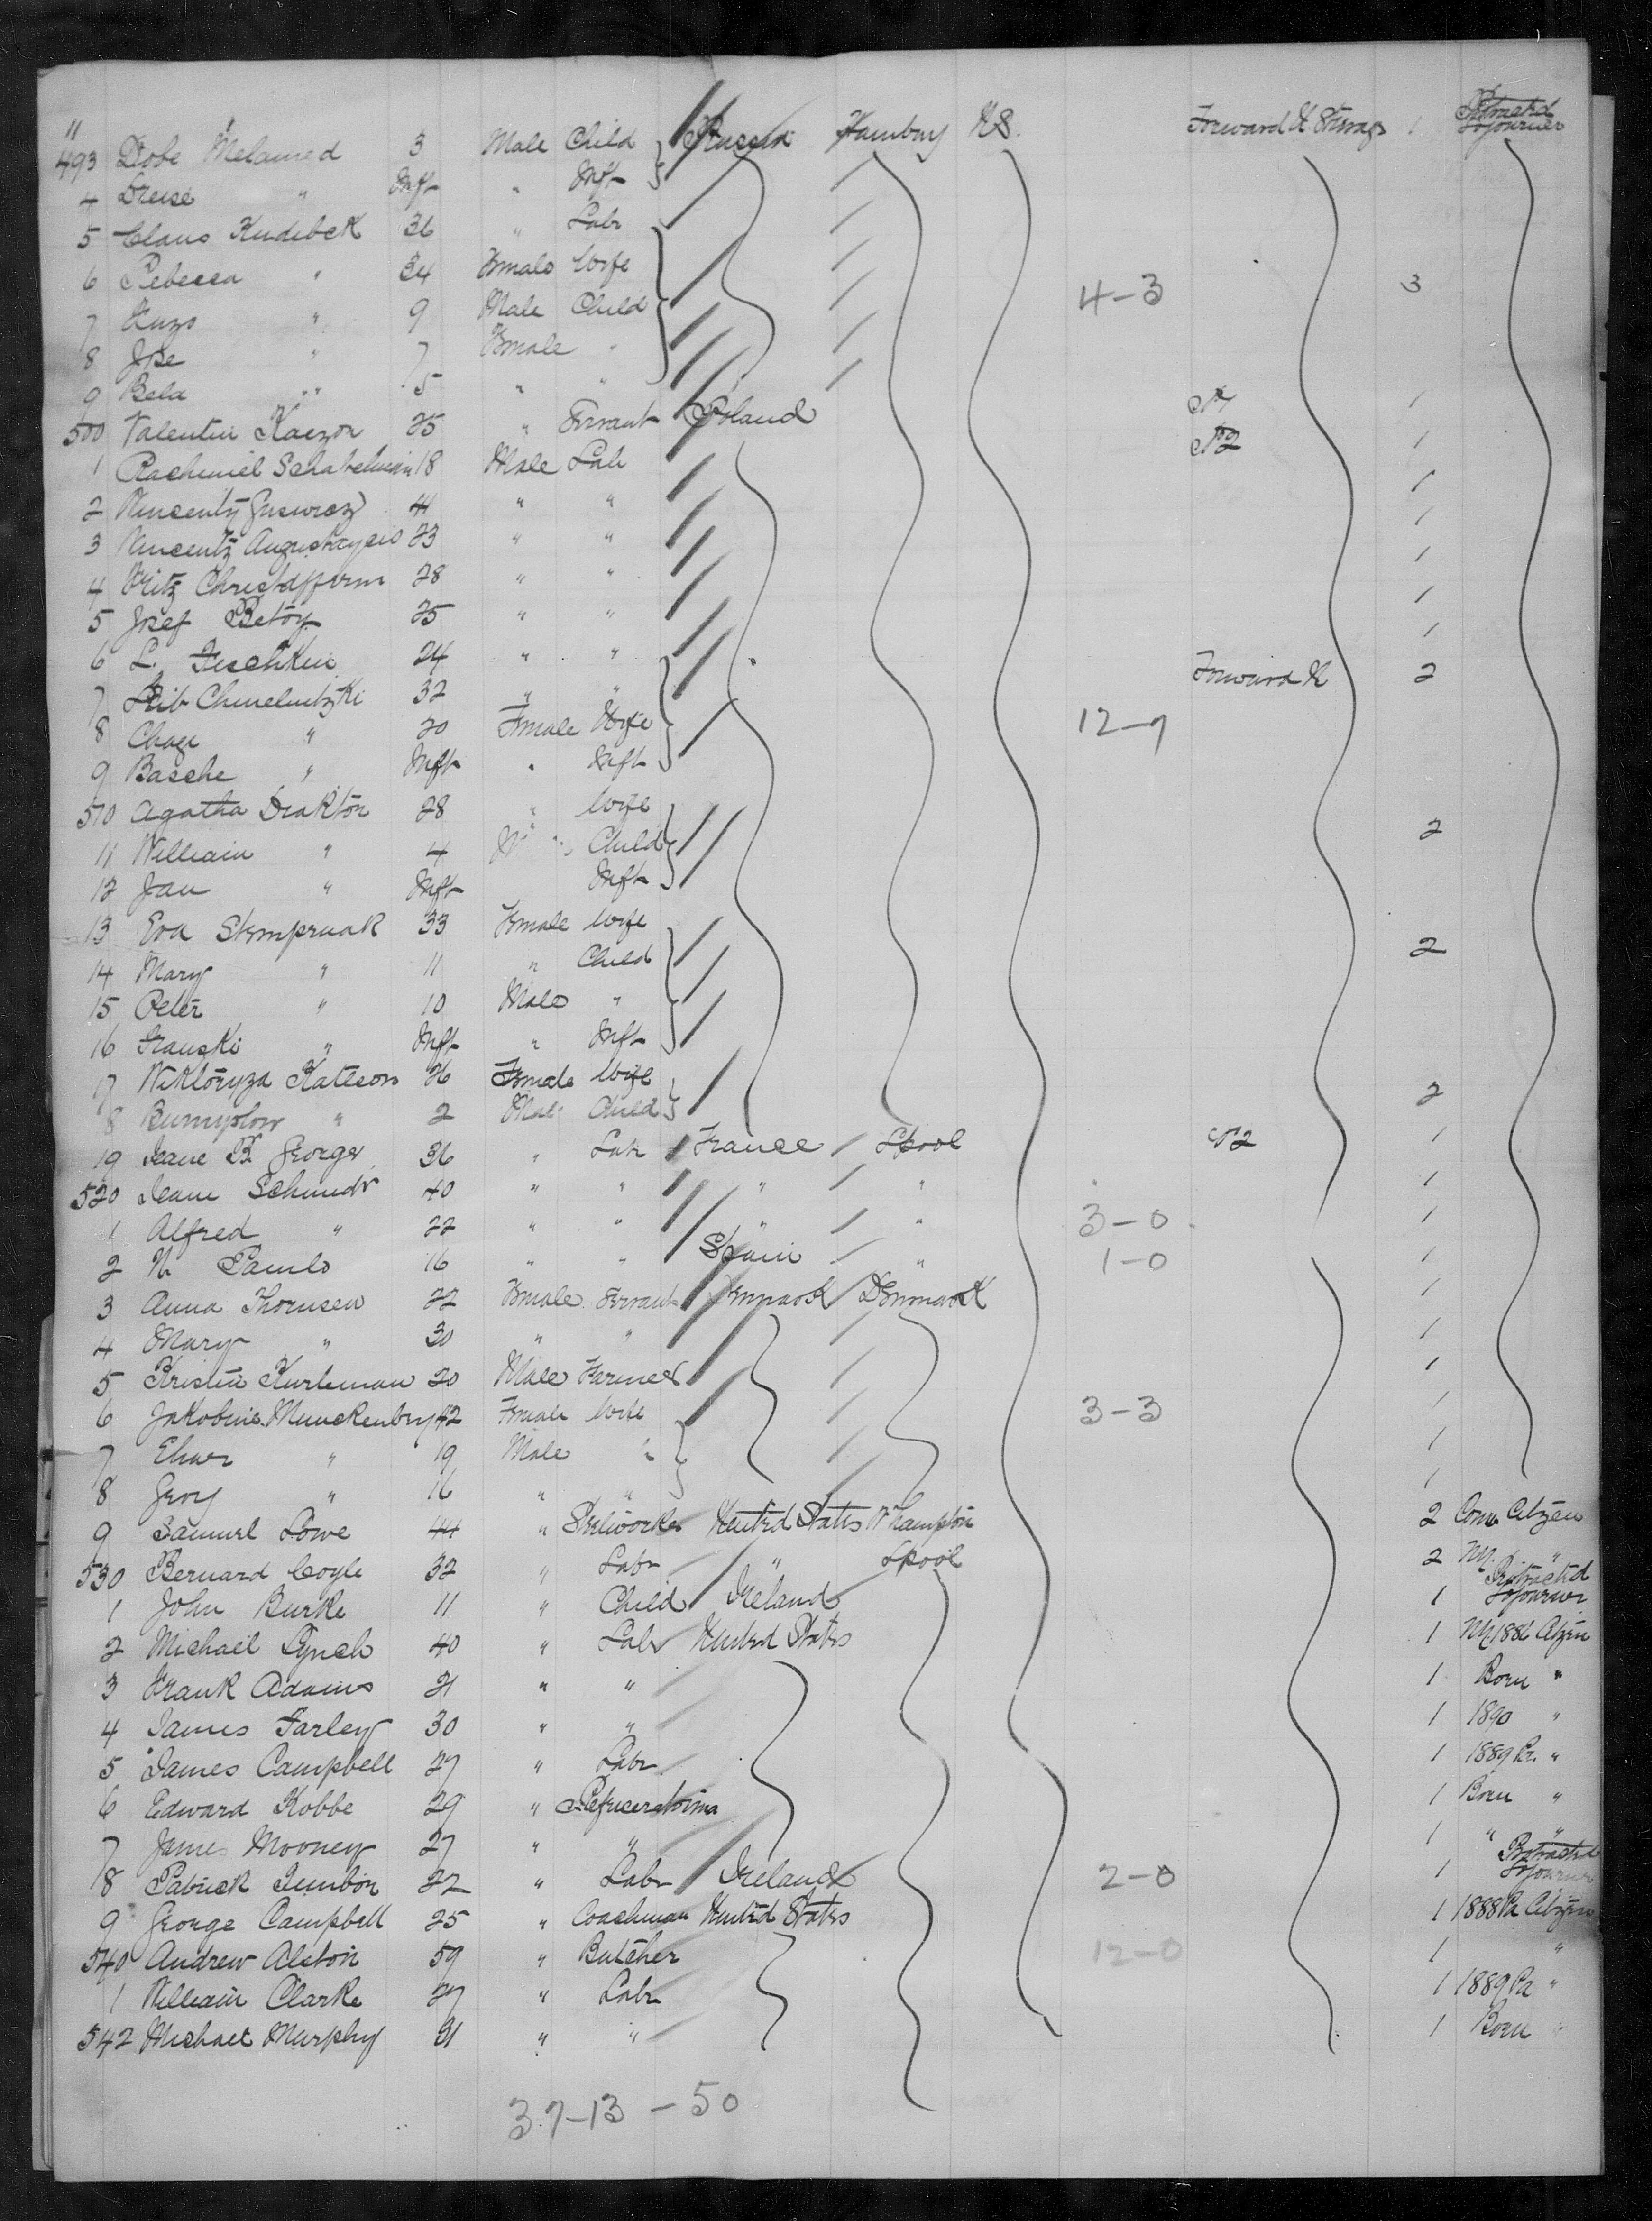 11
493 Dobe Melamed 3 Male Child Russia Hamburg U.S. Forward H Steerage 1 Protractd Sojourner
4 Dreise " Inft " Inft
5 Claus Kudibek 36 " Labr
6 Rebecca " 34 Female Wife 4-3 3
7 " 9 Male Child
8 " 7 Female "
9 Bela " 5 " "
500 Valentin Kaczor 25 " Servant Poland 1
1 18 Male Lab 1
2 44 " " 1
3 23 " " 1
4 Fritz 28 " " 1
5 Josef 25 " " 1
6 L. 24 " " 1
7 Leib Chmelnitzki 32 " " Forward H 2
8 Chage " 20 Female Wife 12-9
9 Basche " Inft " Inft
510 Agatha Draktor 28 " Wife
11 William " 4 Child 2
12 Jan " Inft Inft
13 Eva 33 Female Wife
14 Mary " 11 " Child 2
15 Peter " 10 Male "
16 Franski " Inft " Inft
17 Wiktoryza 26 Female Wife
18 " 2 Male Child 2
19 Jeane B. Georges 36 " Labr France Lpool 1
520 Jeane Schmidt 40 " " " " 1
1 Alfred " 22 " " " " 3-0 1
2 16 " " Spain " 1-0 1
3 Anna Thomsen 22 Female Servant Denmark Denmark 1
4 Mary " 30 " " 1
5 Kristin 20 Male Farmer 1
6 Jakobine 42 Female Wife 3-3 1
7 " 19 Male " 1
8 Georg " 16 " " 1
9 Samuel Lowe 44 " Steelworker United States W'hampton 2 Conn Citizen
530 Bernard Coyle 32 " Labr " Lpool 2 NY. "
1 John Burke 11 " Child Ireland 1 Protractd Sojourner
2 Michael Lynch 40 " Labr United States 1 NY 1886 Citizen
3 Frank Adams 21 " " 1 Born "
4 James Farley 30 " " 1 1890 "
5 James Campbell 27 " Labr 1 1889 Pa. "
6 Edward Kobbe 29 " 1 Born "
7 James Mooney 27 " " 1 " "
8 Patrick 22 " Labr Ireland 2-0 1 Protractd Sojourner
9 George Campbell 25 " Coachman United States 1 1888 Pa Citizen
540 Andrew Alston 59 " Butcher 12-0 1 "
1 William Clarke 27 " Labr 1 1889 Pa "
542 Michael Murphy 31 " " 1 Born "
37-13-50